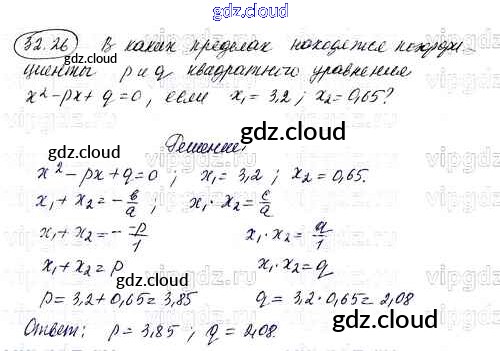 gdz.cloud
32.26 В каких пределах находятся коэффи-
gdz.cloud
циенты p и q квадратного уравнения
x² - px + q = 0, если x₁ = 3,2 ; x₂ = 0,65?
gdz.cloud
Решение:
gdz.cloud
x² - px + q = 0 ; x₁ = 3,2 ; x₂ = 0,65.
x₁ + x₂ = - в/a ; x₁ · x₂ = c/a
gdz.cloud
x₁ + x₂ = - -p/1 x₁ · x₂ = q/1
gdz.cloud
x₁ + x₂ = p x₁ · x₂ = q
gdz.cloud
p = 3,2 + 0,65 = 3,85 q = 3,2 · 0,65 = 2,08
Ответ: p = 3,85 ; q = 2,08.
gdz.cloud